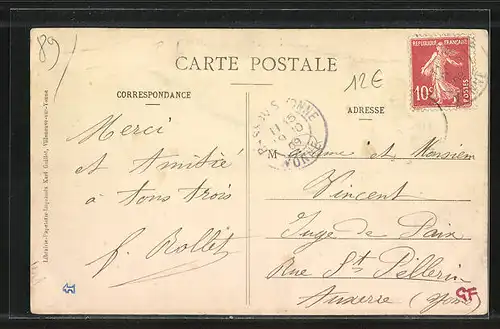 89
CARTE POSTALE
12€
REPUBLIQUE FRANÇAISE
10c
POSTES
CORRESPONDANCE
ADRESSE
YONNE
11 15
9 10
09
YONNE
Merci
et Amitié
à tous trois
f. Rollet
M adame et Monsieur
Vincent
Juge de Paix
Rue St Pèllerin
Auxerre (Yonne)
Librairie-Papeterie-Imprimerie Karl Guillot, Villeneuve-sur-Yonne